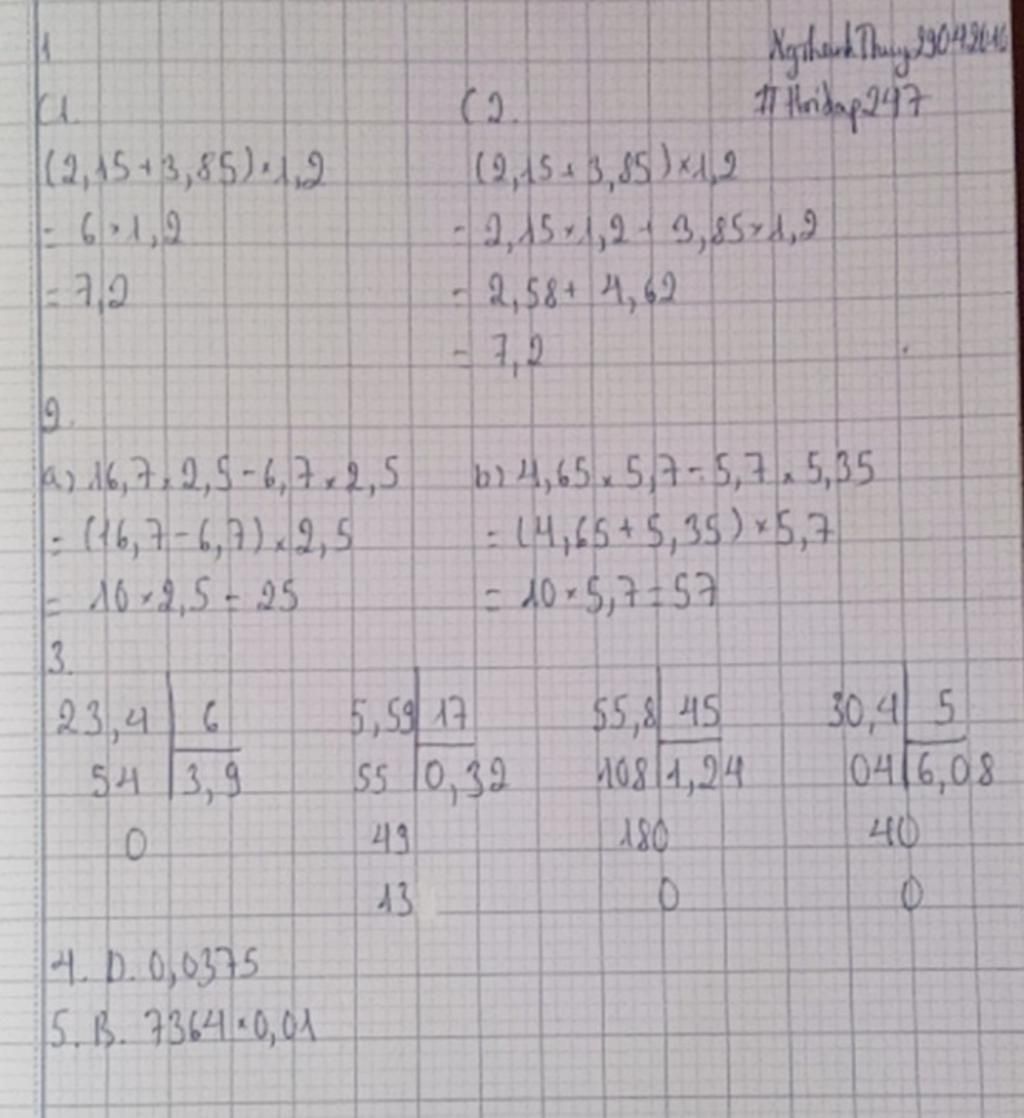 1
NgthanhThuy29042016
C1.
C2.
#Hoidap247
(2,15+3,85)×1,2
= 6×1,2
= 7,2
(2,15+3,85)×1,2
= 2,15×1,2+3,85×1,2
= 2,58+4,62
= 7,2
2.
a) 16,7×2,5-6,7×2,5
= (16,7-6,7)×2,5
= 10×2,5=25
b) 4,65×5,7-5,7×5,35
= (4,65+5,35)×5,7
= 10×5,7=57
3.
23,4 6
54 3,9
0
5,59 17
55 0,32
49
13
55,8 45
108 1,24
180
0
30,4 5
04 6,08
40
0
4. D. 0,0375
5. B. 7364×0,01